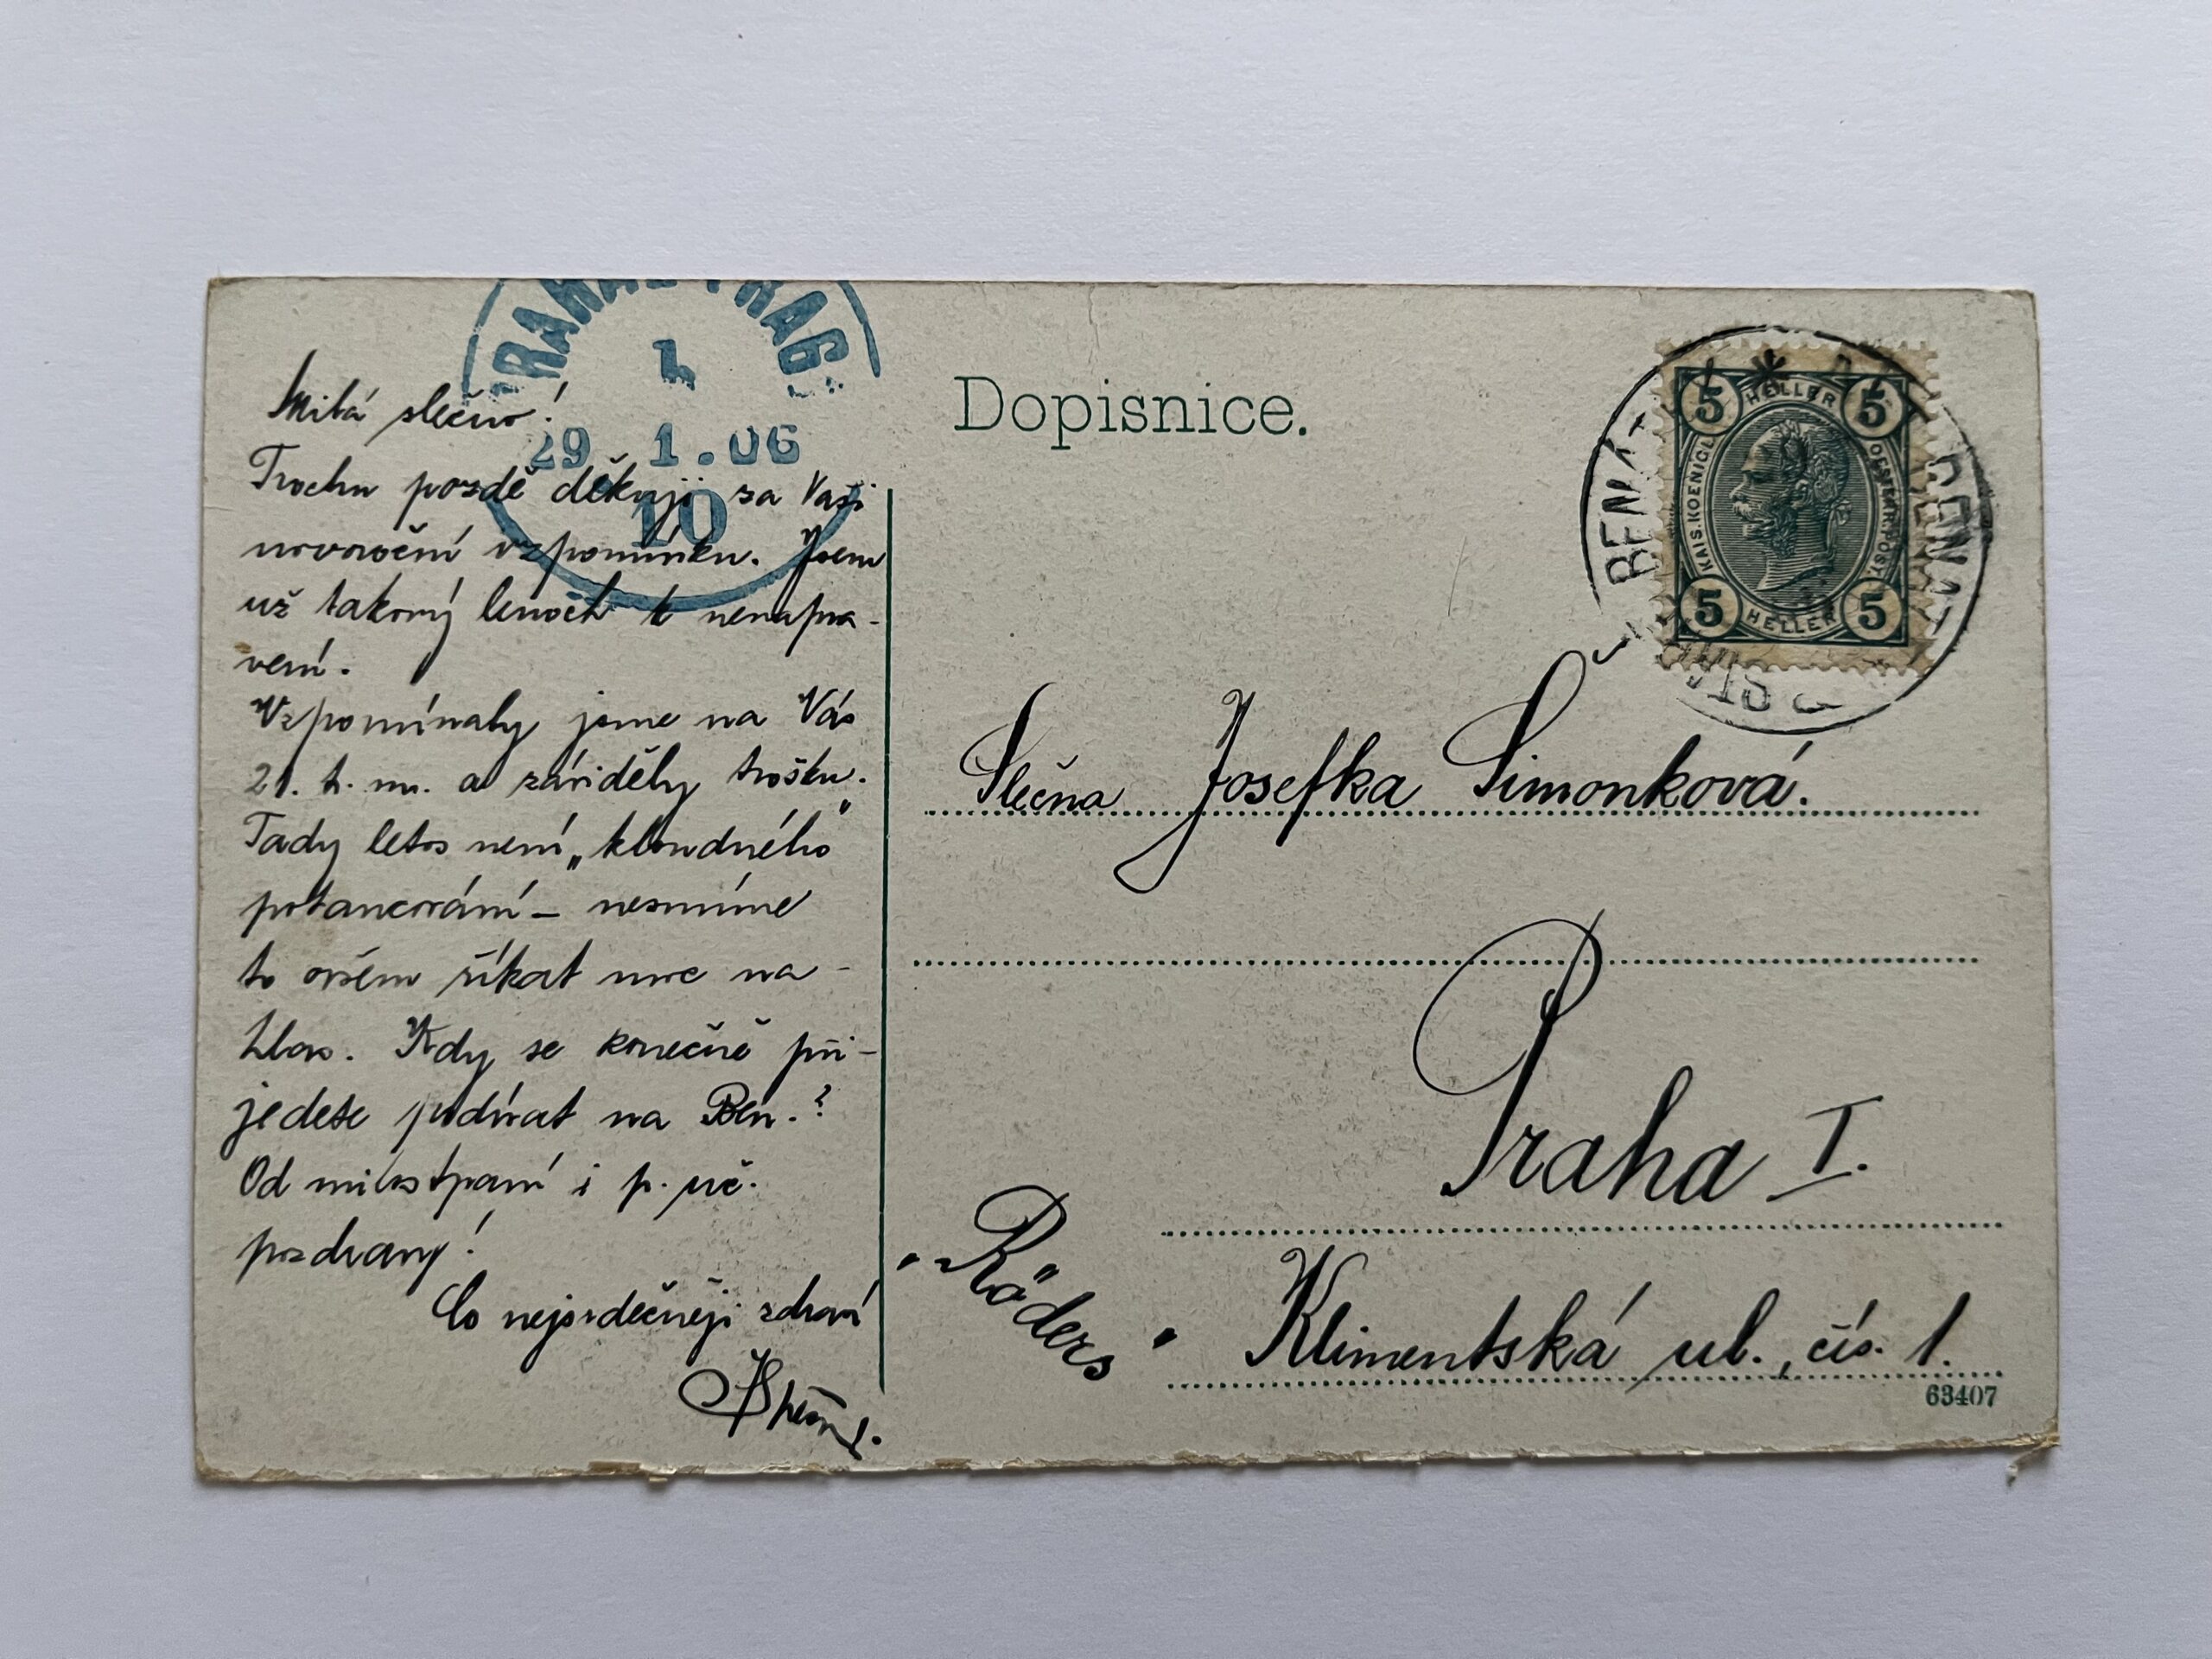 Milá slečno!
Trochu pozdě děkuji za Vaši
novoroční vzpomínku. Jsem
už takový lenoch k nenapra-
vení.
Vzpomínaly jsme na Vás
21. t. m. a záviděly trošku.
Tady letos není „kloudného"
potancování — nesmíme
to ovšem říkat moc na-
hlas. Kdy se konečně při-
jedete podívat na Ben.?
Od milostpaní i p. uč.
pozdravy!
Co nejsrdečněji zdraví
PRAG
29 1.06
10
Dopisnice.
5 HELLER 5
KAIS. KOENIGL. OESTERR. POST.
5 HELLER 5
Slečna Josefka Simonková.
Praha I.
"Röders"
Klimentská ul., čís. 1.
63407